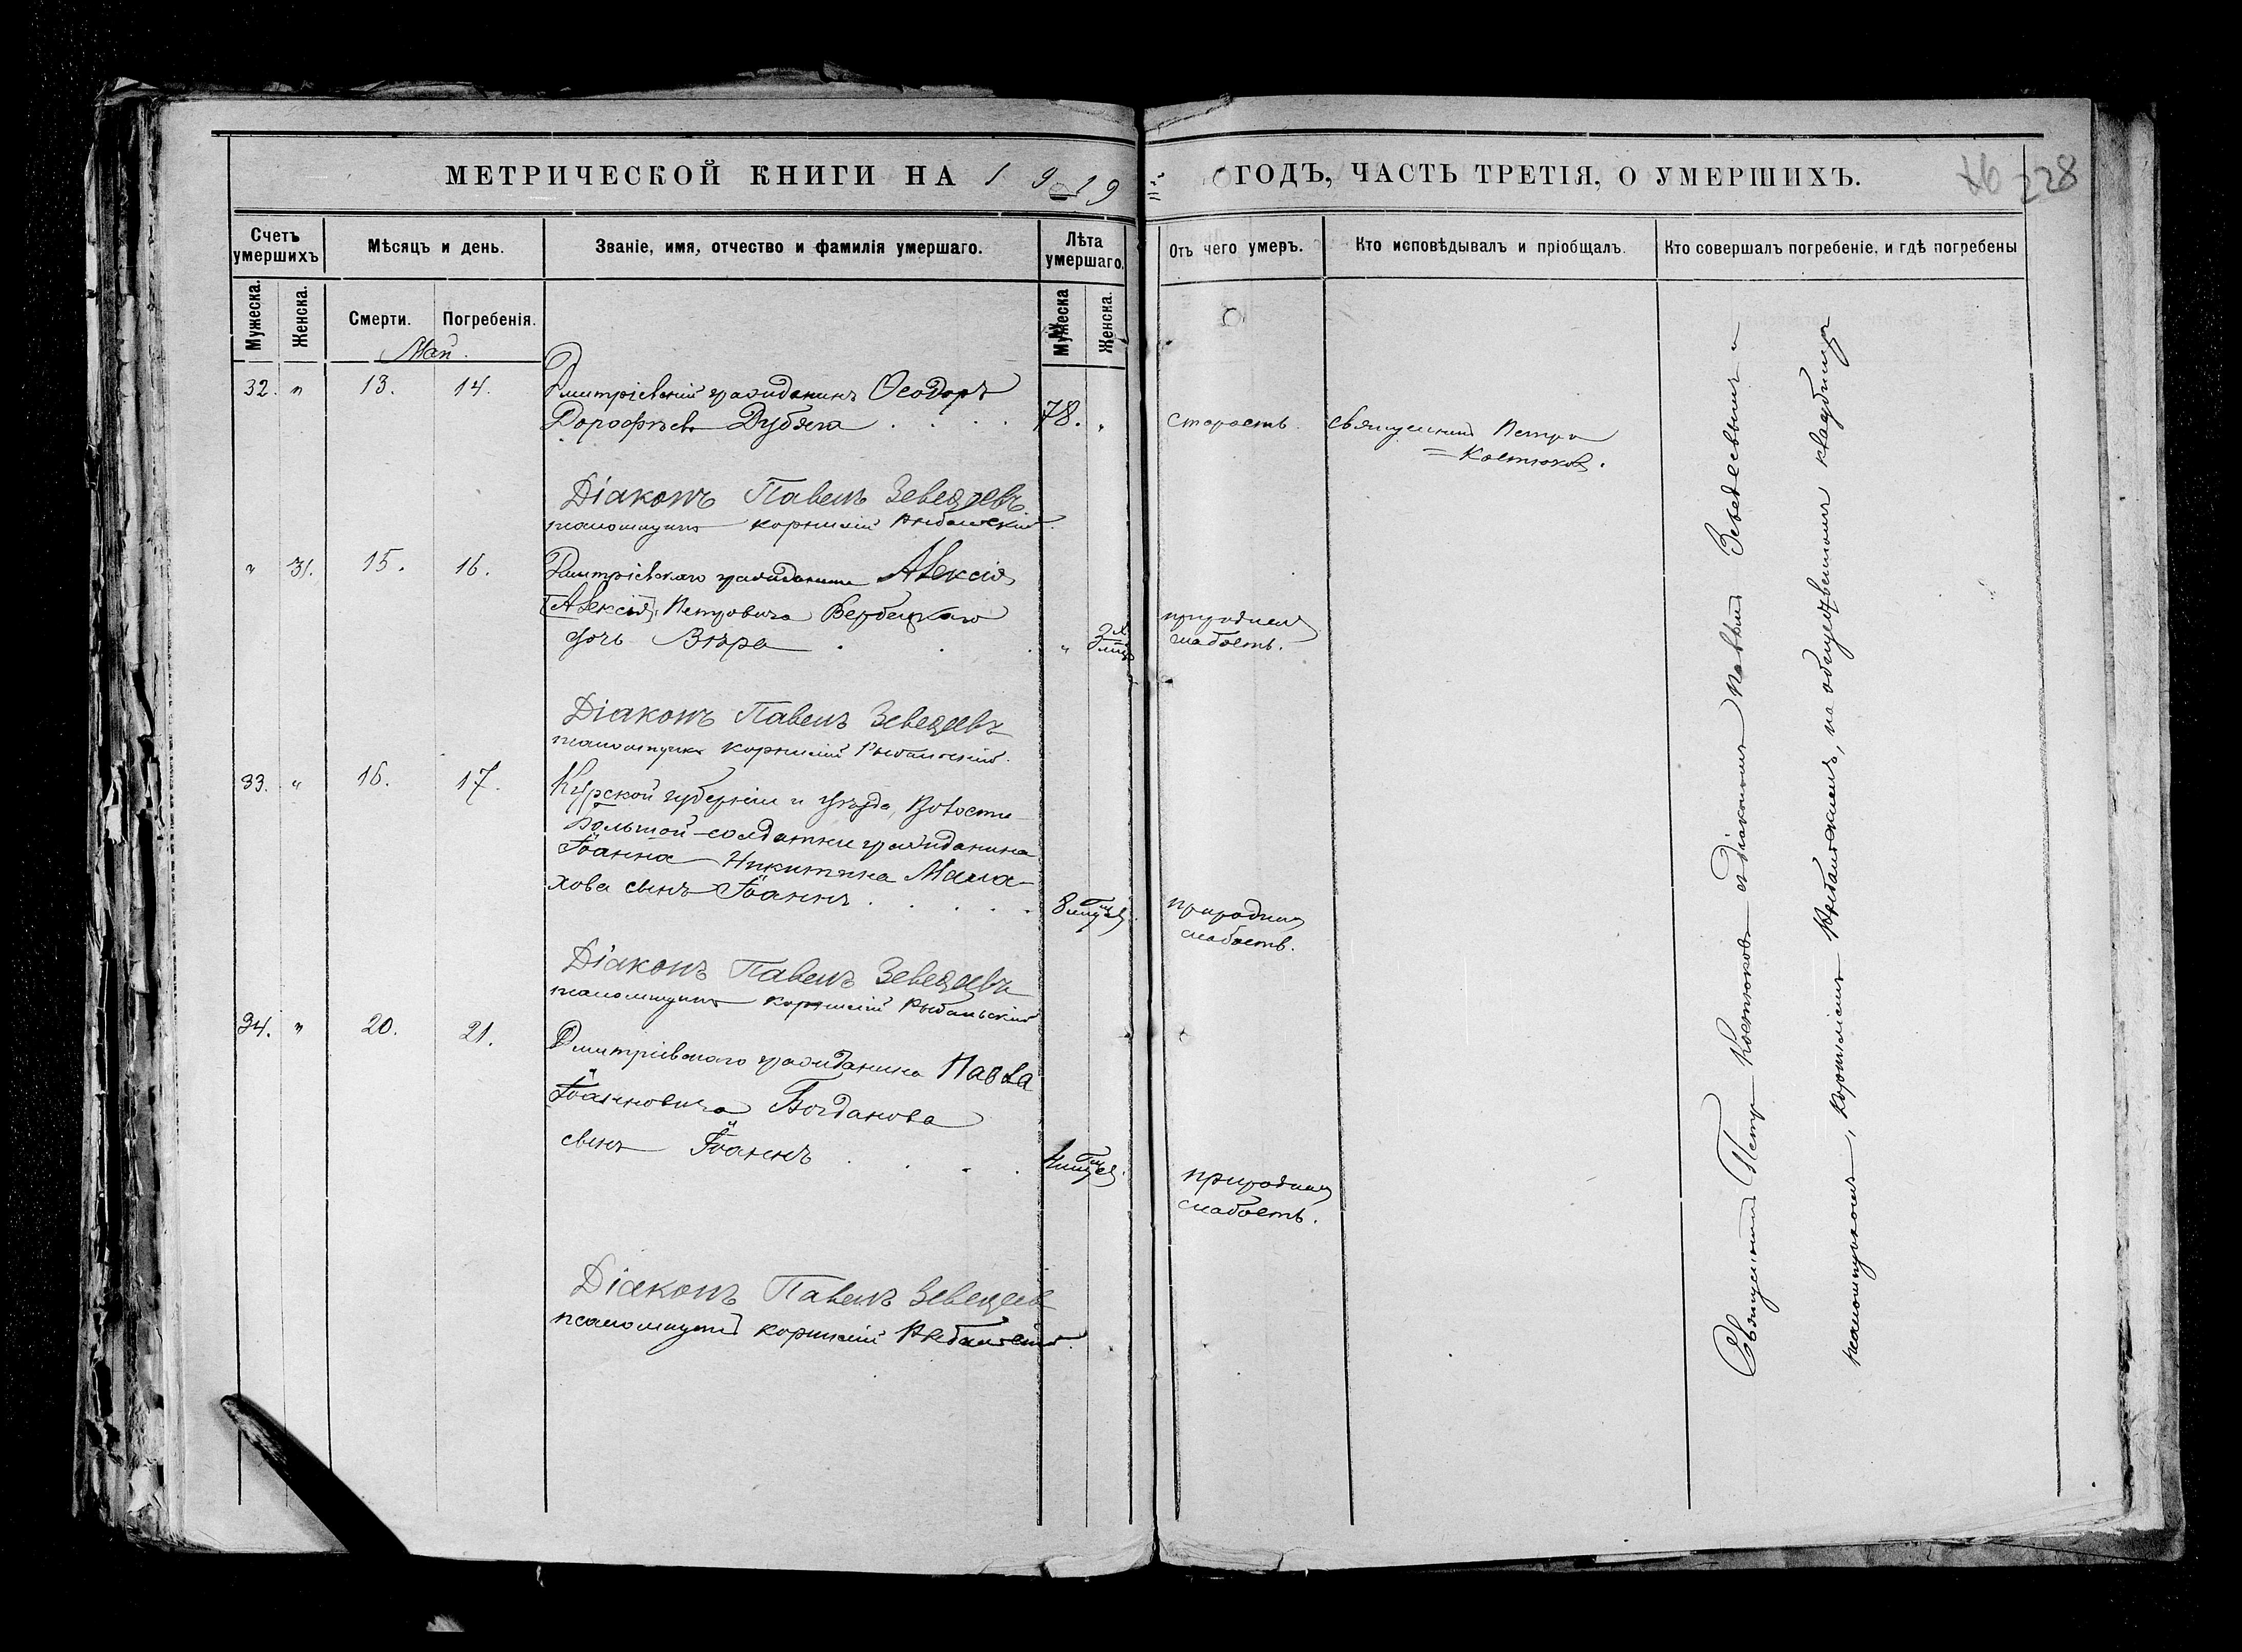 МЕТРИЧЕСКОЙ КНИГИ НА 1919
ГОДЪ, ЧАСТЬ ТРЕТІЯ, О УМЕРШИХЪ.
228
Счетъ умершихъ
Мѣсяцъ и день.
Званіе, имя, отчество и фамилія умершаго.
Лѣта умершаго.
Отъ чего умеръ.
Кто исповѣдывалъ и пріобщалъ.
Кто совершалъ погребеніе, и гдѣ погребены
Мужеска.
Женска.
Смерти.
Погребенія.
Мужеска
Женска.
Май.
32. " 13. 14. Дмитріевскій гражданинъ Ѳеодоръ
Дорофѣевъ Дубяга 78. " старость. священникъ Петръ
Костюковъ.
Діаконъ Павелъ Зеведеевъ
псаломщикъ Корнилій Рыбальскій.
" 31. 15. 16. Дмитріевскаго гражданина Алексія
[Алексія] Петровича Вербецкаго
дочь Вѣра " 3хъ мѣс природная
слабость.
Діаконъ Павелъ Зеведеевъ
псаломщикъ Корнилій Рыбальскій.
33. " 16. 17. Курской губерніи и уѣзда, Волости
Большой-солдатки гражданина
Іоанна Никитина Мала-
хова сынъ Іоаннъ 8 природная
слабость.
Діаконъ Павелъ Зеведеевъ
псаломщикъ Корнилій Рыбальскій
34. " 20. 21. Дмитріевскаго гражданина Павла
Іоанновича Богданова
сынъ Іоаннъ природная
слабость.
Діаконъ Павелъ Зеведеевъ
псаломщикъ Корнилій Рыбальскій.
Священникъ Петръ Костюковъ съ діакономъ Павломъ Зеведеевымъ и
псаломщикомъ, Корниліемъ Рыбальскимъ, на общественномъ кладбищѣ